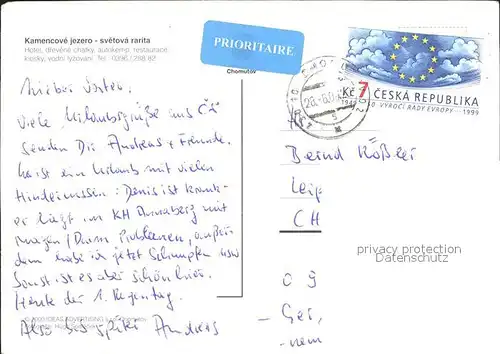 Kamencové jezero - světová rarita
Hotel, dřevěné chatky, autokemp, restaurace,
kiosky, vodní lyžování Tel.
PRIORITAIRE
Chomutov
Kč 7 ČESKÁ REPUBLIKA
VÝROČÍ RADY EVROPY 1999
Viele Urlaubsgrüße aus
Senden Dir Andreas + Freunde.
ist ein Urlaub mit vielen
Hindernissen: Denis ist krank
er liegt im KH Annaberg mit
Magen/Darm Problemen, außer
dem habe ich jetzt Schnupfen usw
Sonst ist es aber schön hier.
Heute der 1. Regentag.
Also bis später Andreas
Bernd Rößler
Leip
CH
privacy protection
Datenschutz
09
- Ger,
- nem